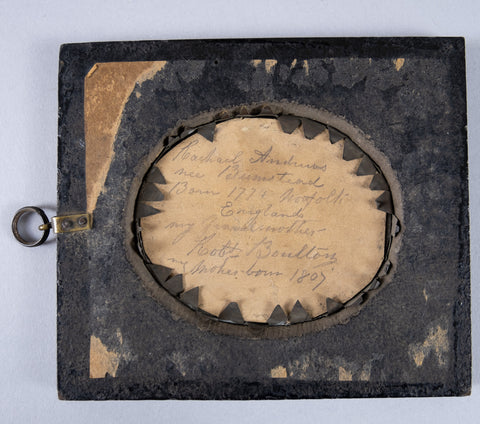 Rachael Andrews
nee Bumstead
Born 1775 Norfolk
England
my Grand-mother
Robt Boulton
my Mother born 1807